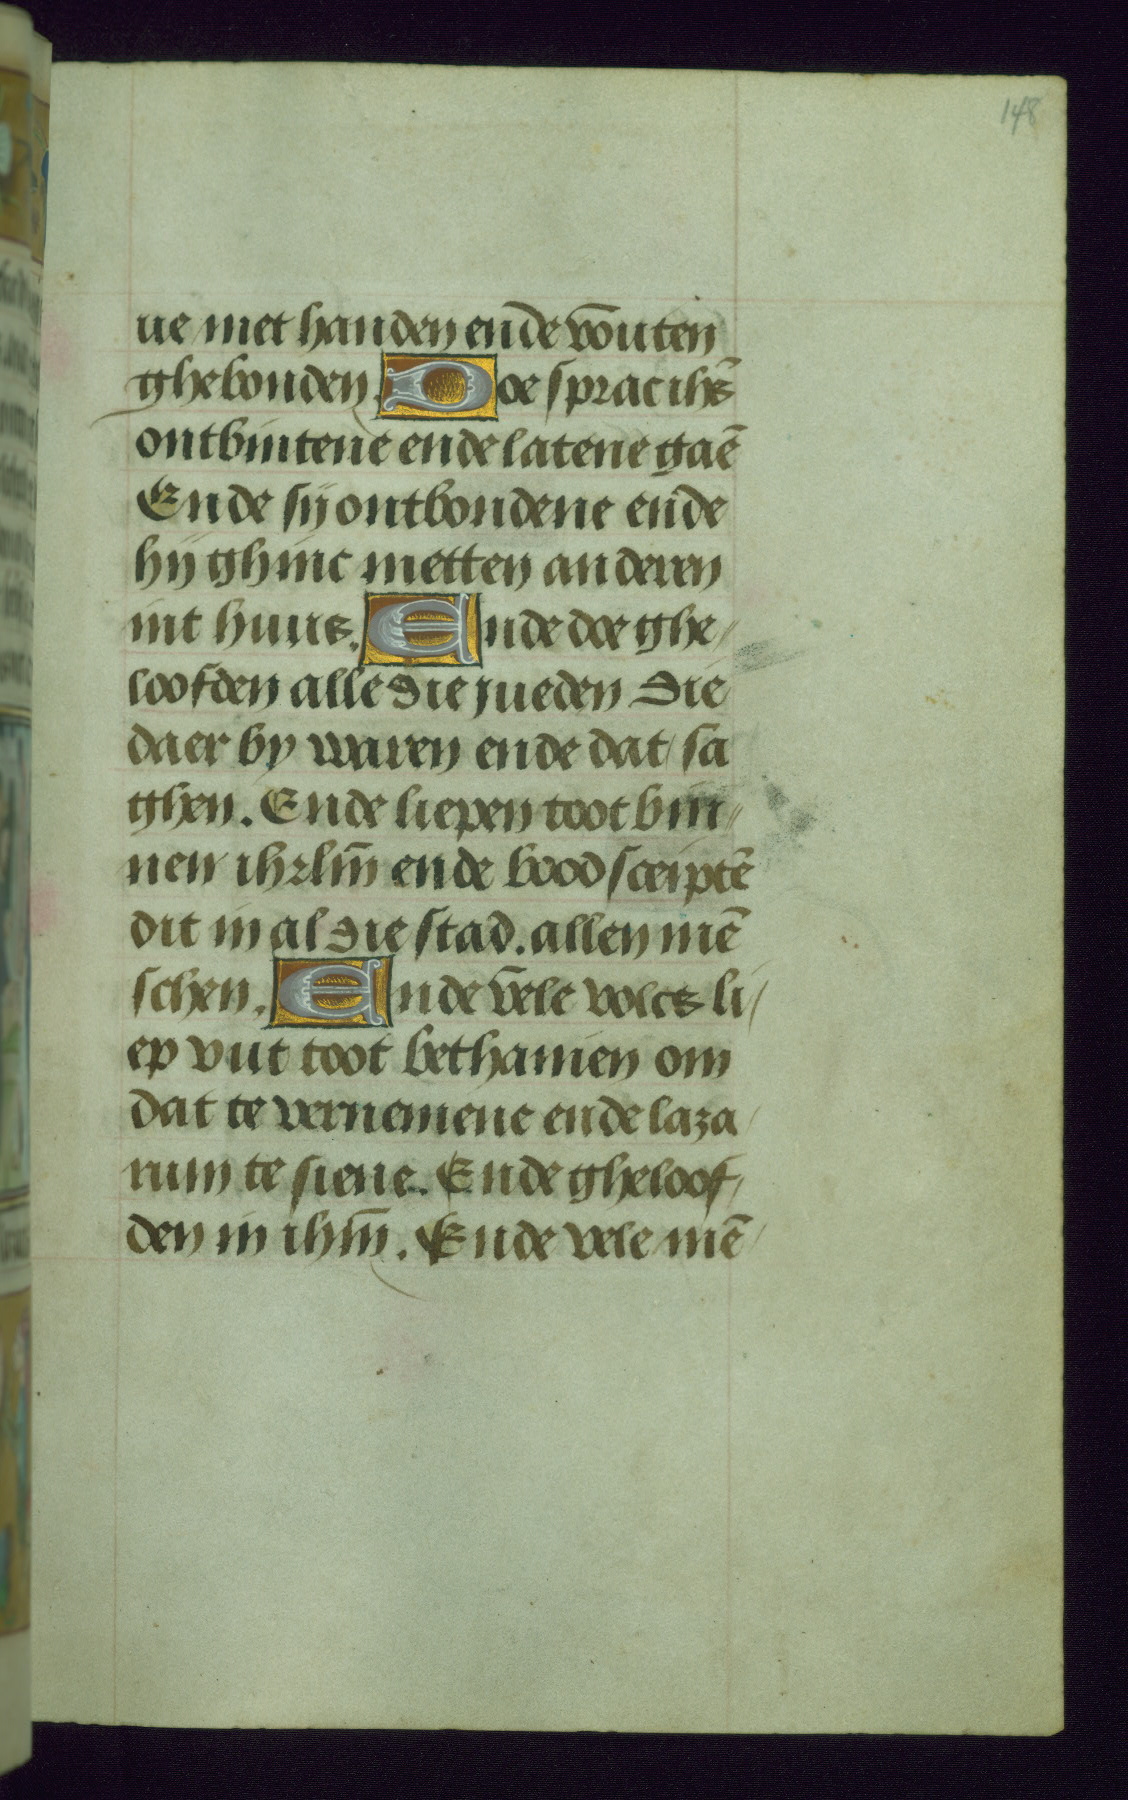 148
ue met handen ende vōuten
ghebonden. Doe sprac ihs̄
ontbintene ende latene gaē
Ende sij ontbondene ende
hij ghinc metten anderen
int huus. Ende doe ghe/
loofden alle die jueden die
daer by waren ende dat sa
ghen. Ende liepen toot bin/
nen ihrlm̄ ende boodsceiptē
dit in al die stad. allen mē
schen. Ende vele volcs li/
ep vut toot bethanien om
dat te vernemene ende laza/
rum te siene. Ende gheloof/
den in ihm̄. Ende vele mē/